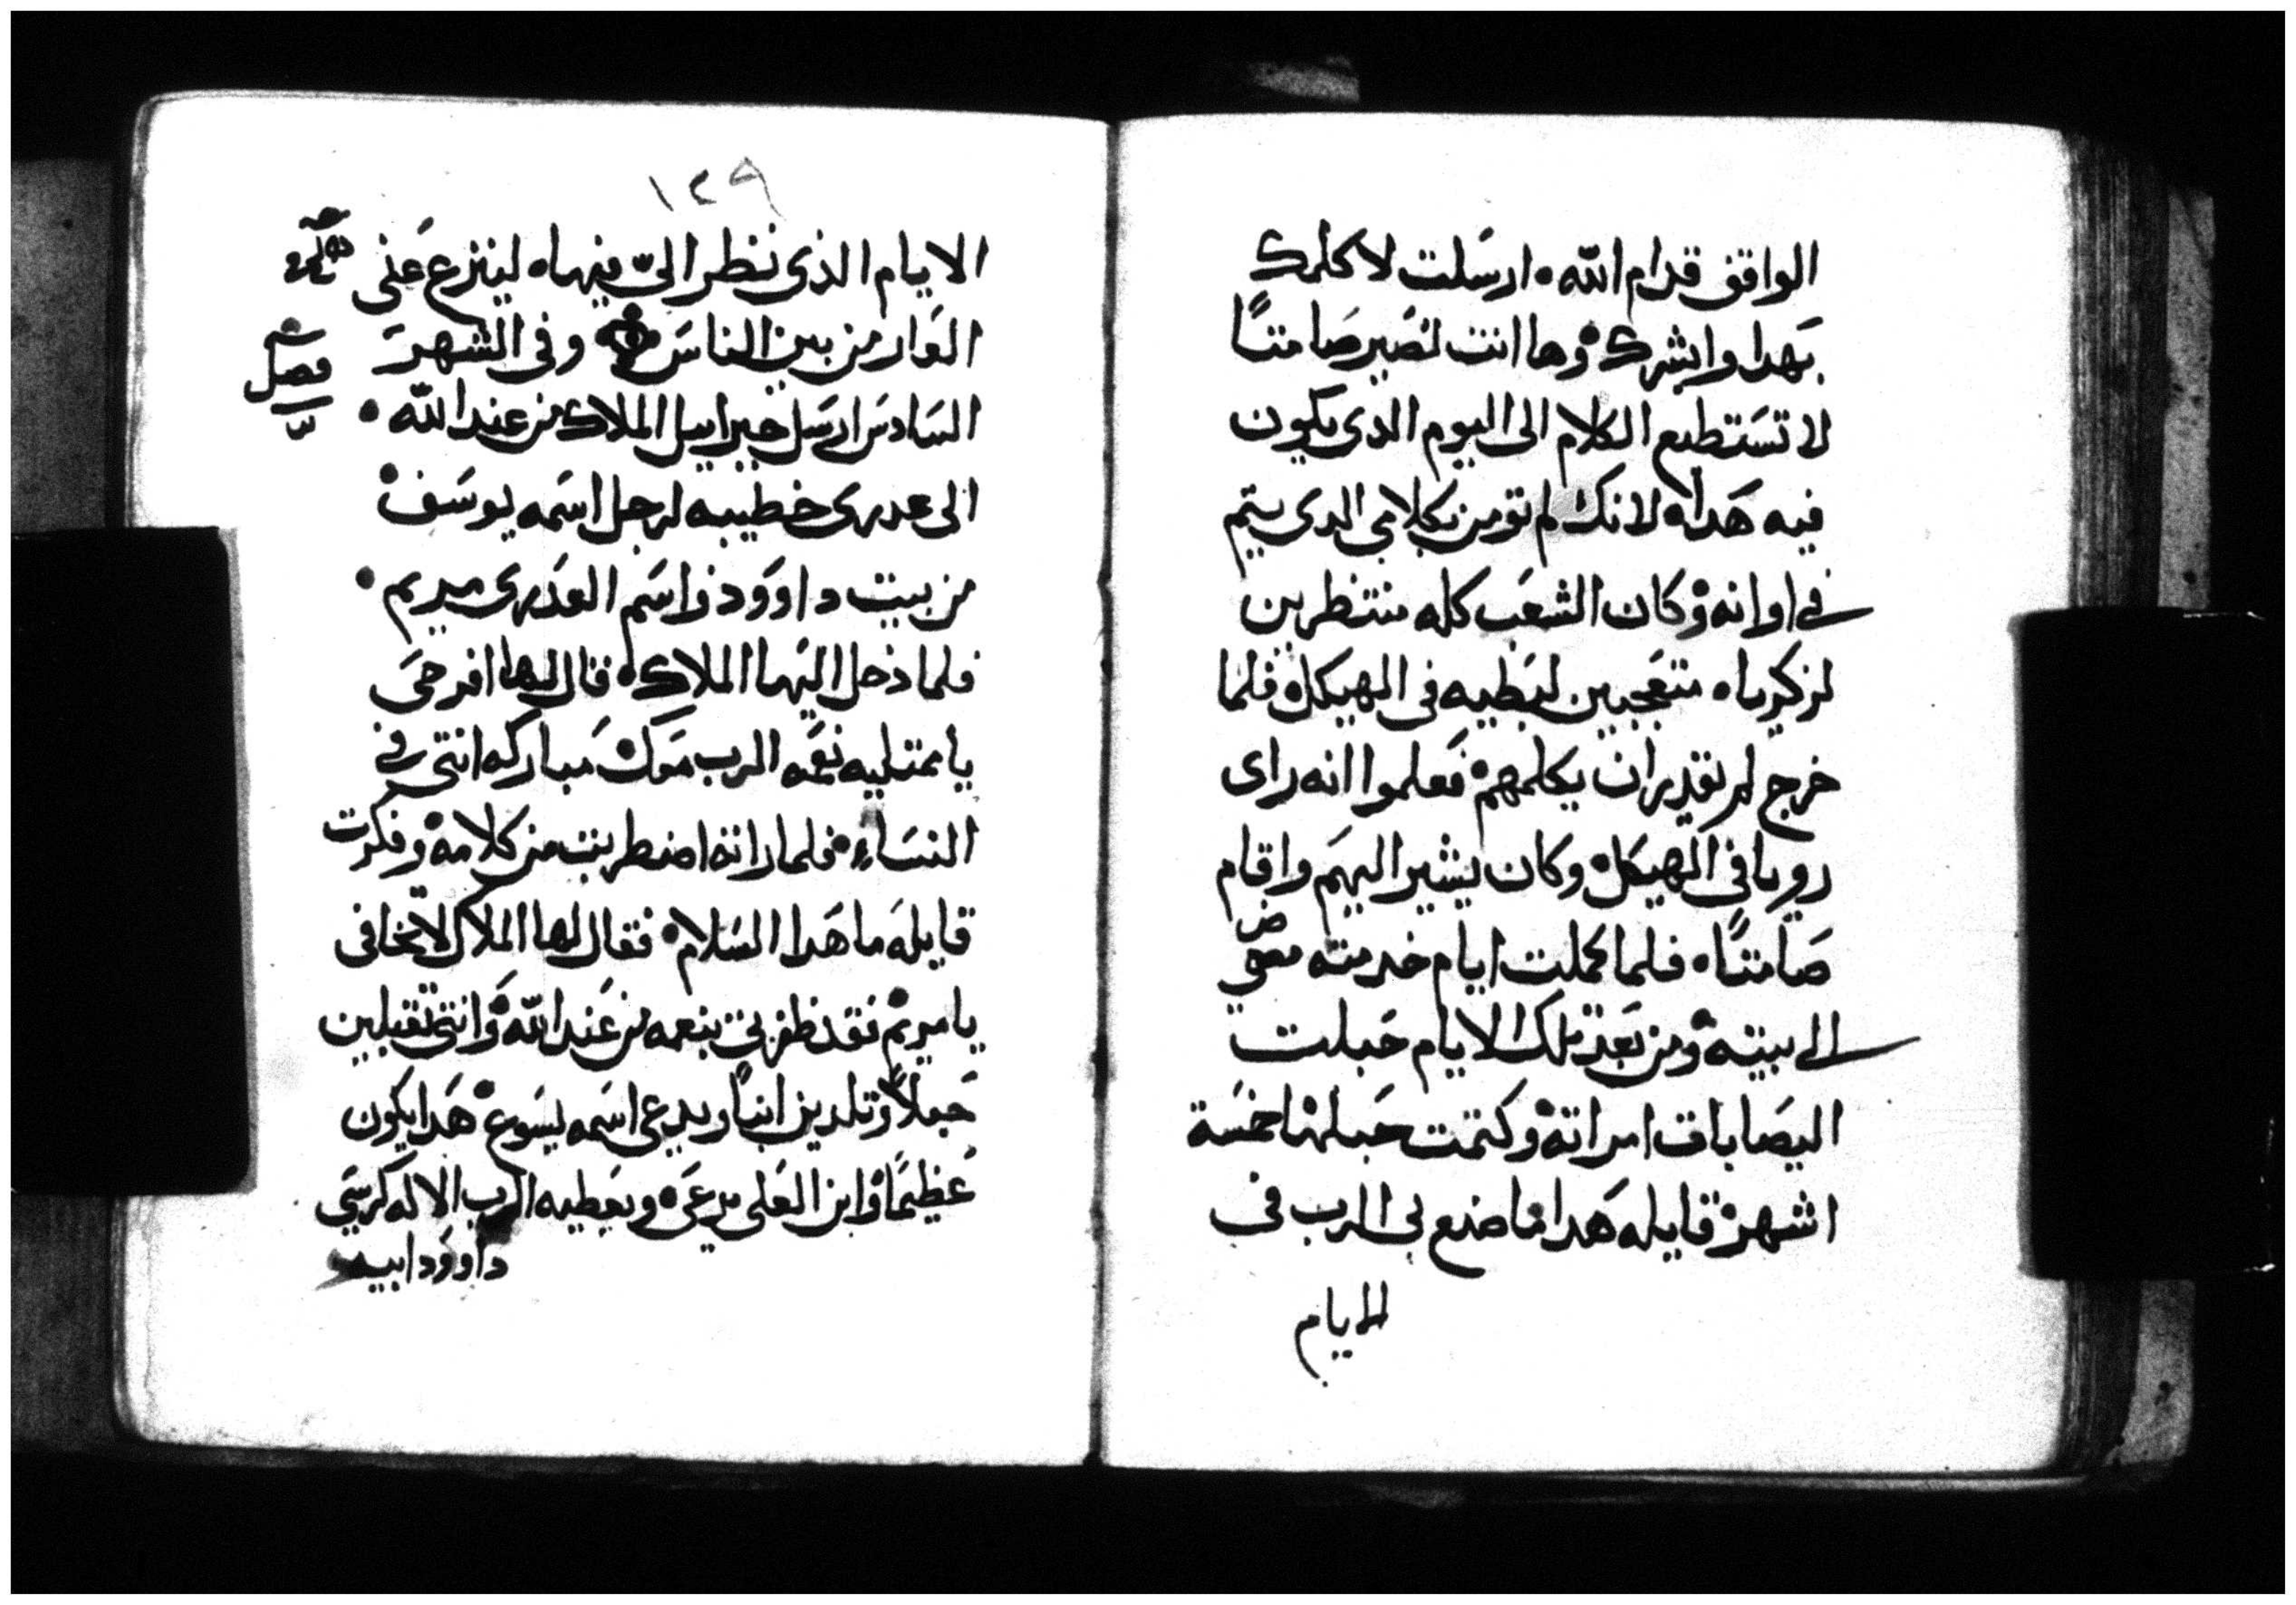 الواقف قدام الله • ارسلت لاكلمك
بهدا وابشرك • وها انت تصير صامتاً
لا تستطيع الكلام الى اليوم الدى يكون
فيه هدا • لانك لم تومن بكلامي الدى يتم
في اوانه • وكان الشعب كله منتظرين
لزكريا • متعجبين لبطيه في الهيكل • فلما
خرج لم يقدر ان يكلمهم • فعلموا انه راى
رويا في الهيكل • وكان يشير اليهم واقام
صامتاً • فلما كملت ايام خدمته مضي
الى بيته • ومن بعد تلك الايام حبلت
اليصابات امراته • وكتمت حبلها خمسة
اشهر • قايله هدا ما صنع بي الرب في
الايام
١٢٩
الايام الذي نظر اليّ فيها • لينزع عني
العار من بين الناس وفي الشهر
فصل
السادس ارسل جبراييل الملاك من عند الله •
الى عدرى خطيبه لرجل اسمه يوسف •
من بيت داوود واسم العدرى مريم •
فلما دخل اليها الملاك • قال لها افرحي
يا ممتليه نعمه الرب معك مباركه انتي في
النساء • فلما راته اضطربت من كلامه • وفكرت
قايله ما هدا السلام • فقال لها الملاك لا تخافي
يا مريم فقد ظفرتي بنعمه من عند الله • وانتي تقبلين
حبلاً وتلدين ابناً ويدعى اسمه يسوع • هدا يكون
عظيماً وابن العلي يدعى • ويعطيه الرب الاله كرسي
داوود ابيه